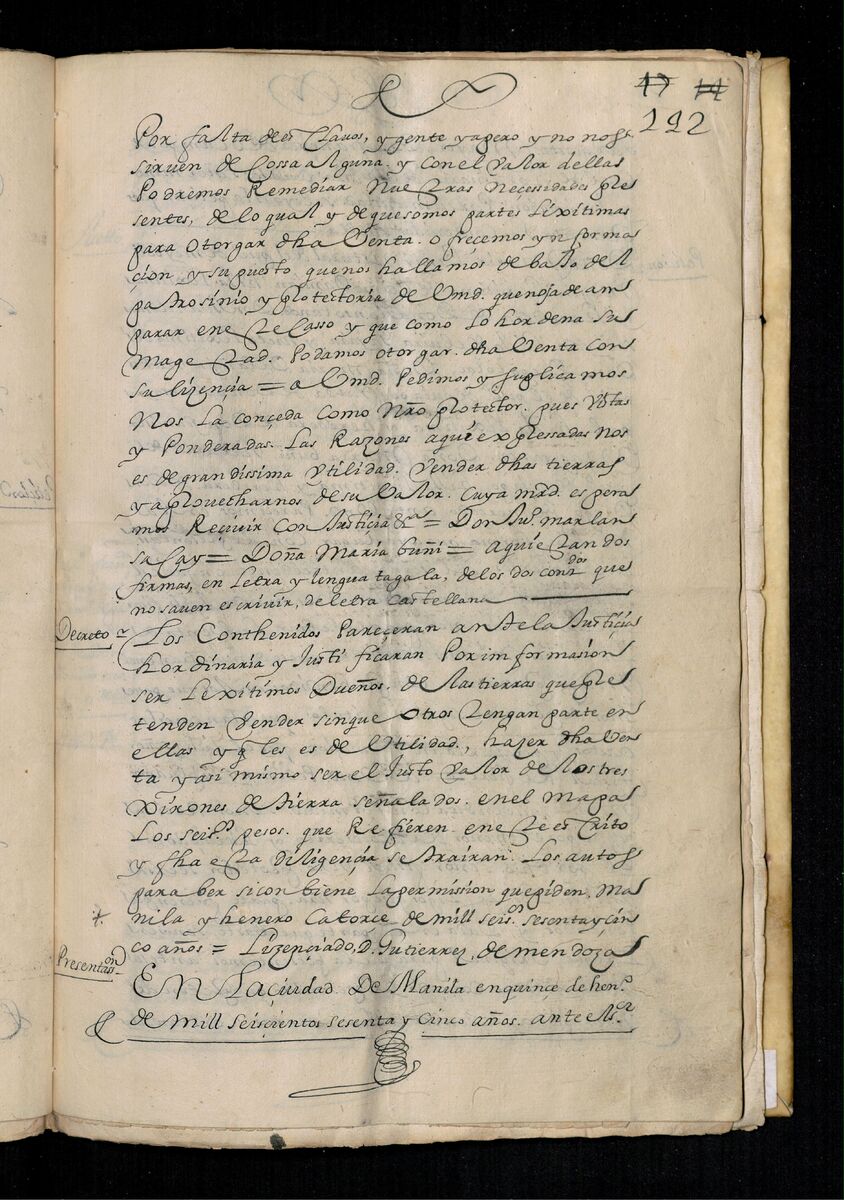 17 14
192
Por falta de esclavos, y gente y apero y no nos
sirven de Cossa alguna. y con el valor dellas
Podremos Remediar Nuestras Necessidades pre
sentes, de lo qual y de que somos partes Lixitimas
para otorgar dha Venta. ofrecemos ynforma
çion y supuesto que nos hallamos debaxo del
patrosinio y protectoria de Vmd. que nos a de am
parar en este Casso y que como lo hordena su
Magestad. Podamos otorgar. dha Venta con
su lizençia = a Vmd. Pedimos y suplicamos
Nos la conçeda como Nro protector. pues Vistas
y Ponderadas. Las Razones aqui expressadas Nos
es de grandissima Utilidad. Vender dhas tierras
y aprovecharnos de su Valor. Cuya mrd. espera
mos Reçivir Con Justicia &ra = Don Juo. marlan
saCay = Doña Maria buñi = aqui estan dos
firmas, en Letra y lengua tagala, de los dos contdos que
no saven escrivir, de letra castellana
Decreto
Los Conthenidos Pareçeran ante la Justiçia
hordinaria y Justificaran Por imformasion
ser Lexitimos Dueños. de las tierras que pre
tenden Vender sin que otros tengan parte en
ellas y q les es de Utilidad, hazer dha Ven
ta y asi mismo ser el Justo Valor de los tres
xirones de tierra señalados. en el mapa
Los seisos pesos. que Refieren en este escrito
y fha esta diligençia se trairan. Los autos
para ber si conbiene la permission que piden. Ma
nila y henero Catorçe de mill seisos sesenta y cin
co años = Lizençiado, D. Gutierrez, de mendoza
Presentason
En La çiudad De Manila en quinze de heno
de mill seisçientos sesenta y Cinco años. ante el Sor